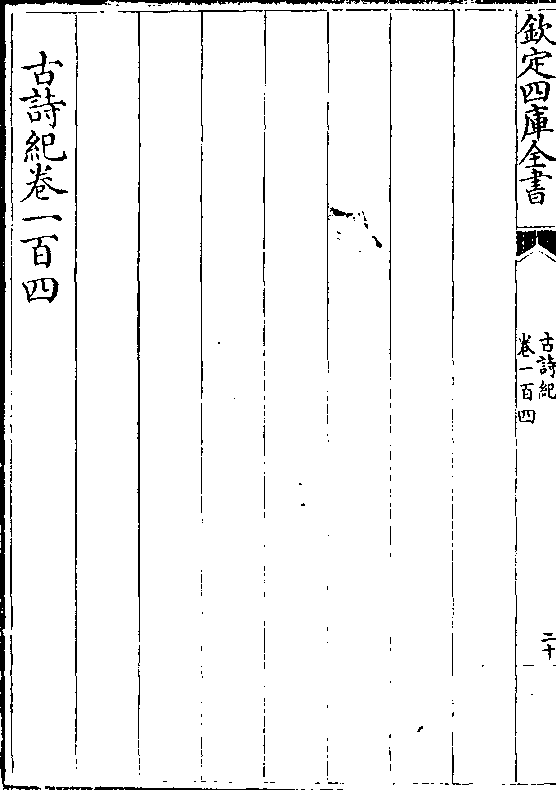 欽定四庫全書
古詩紀
卷一百四
二十
古詩紀卷一百四